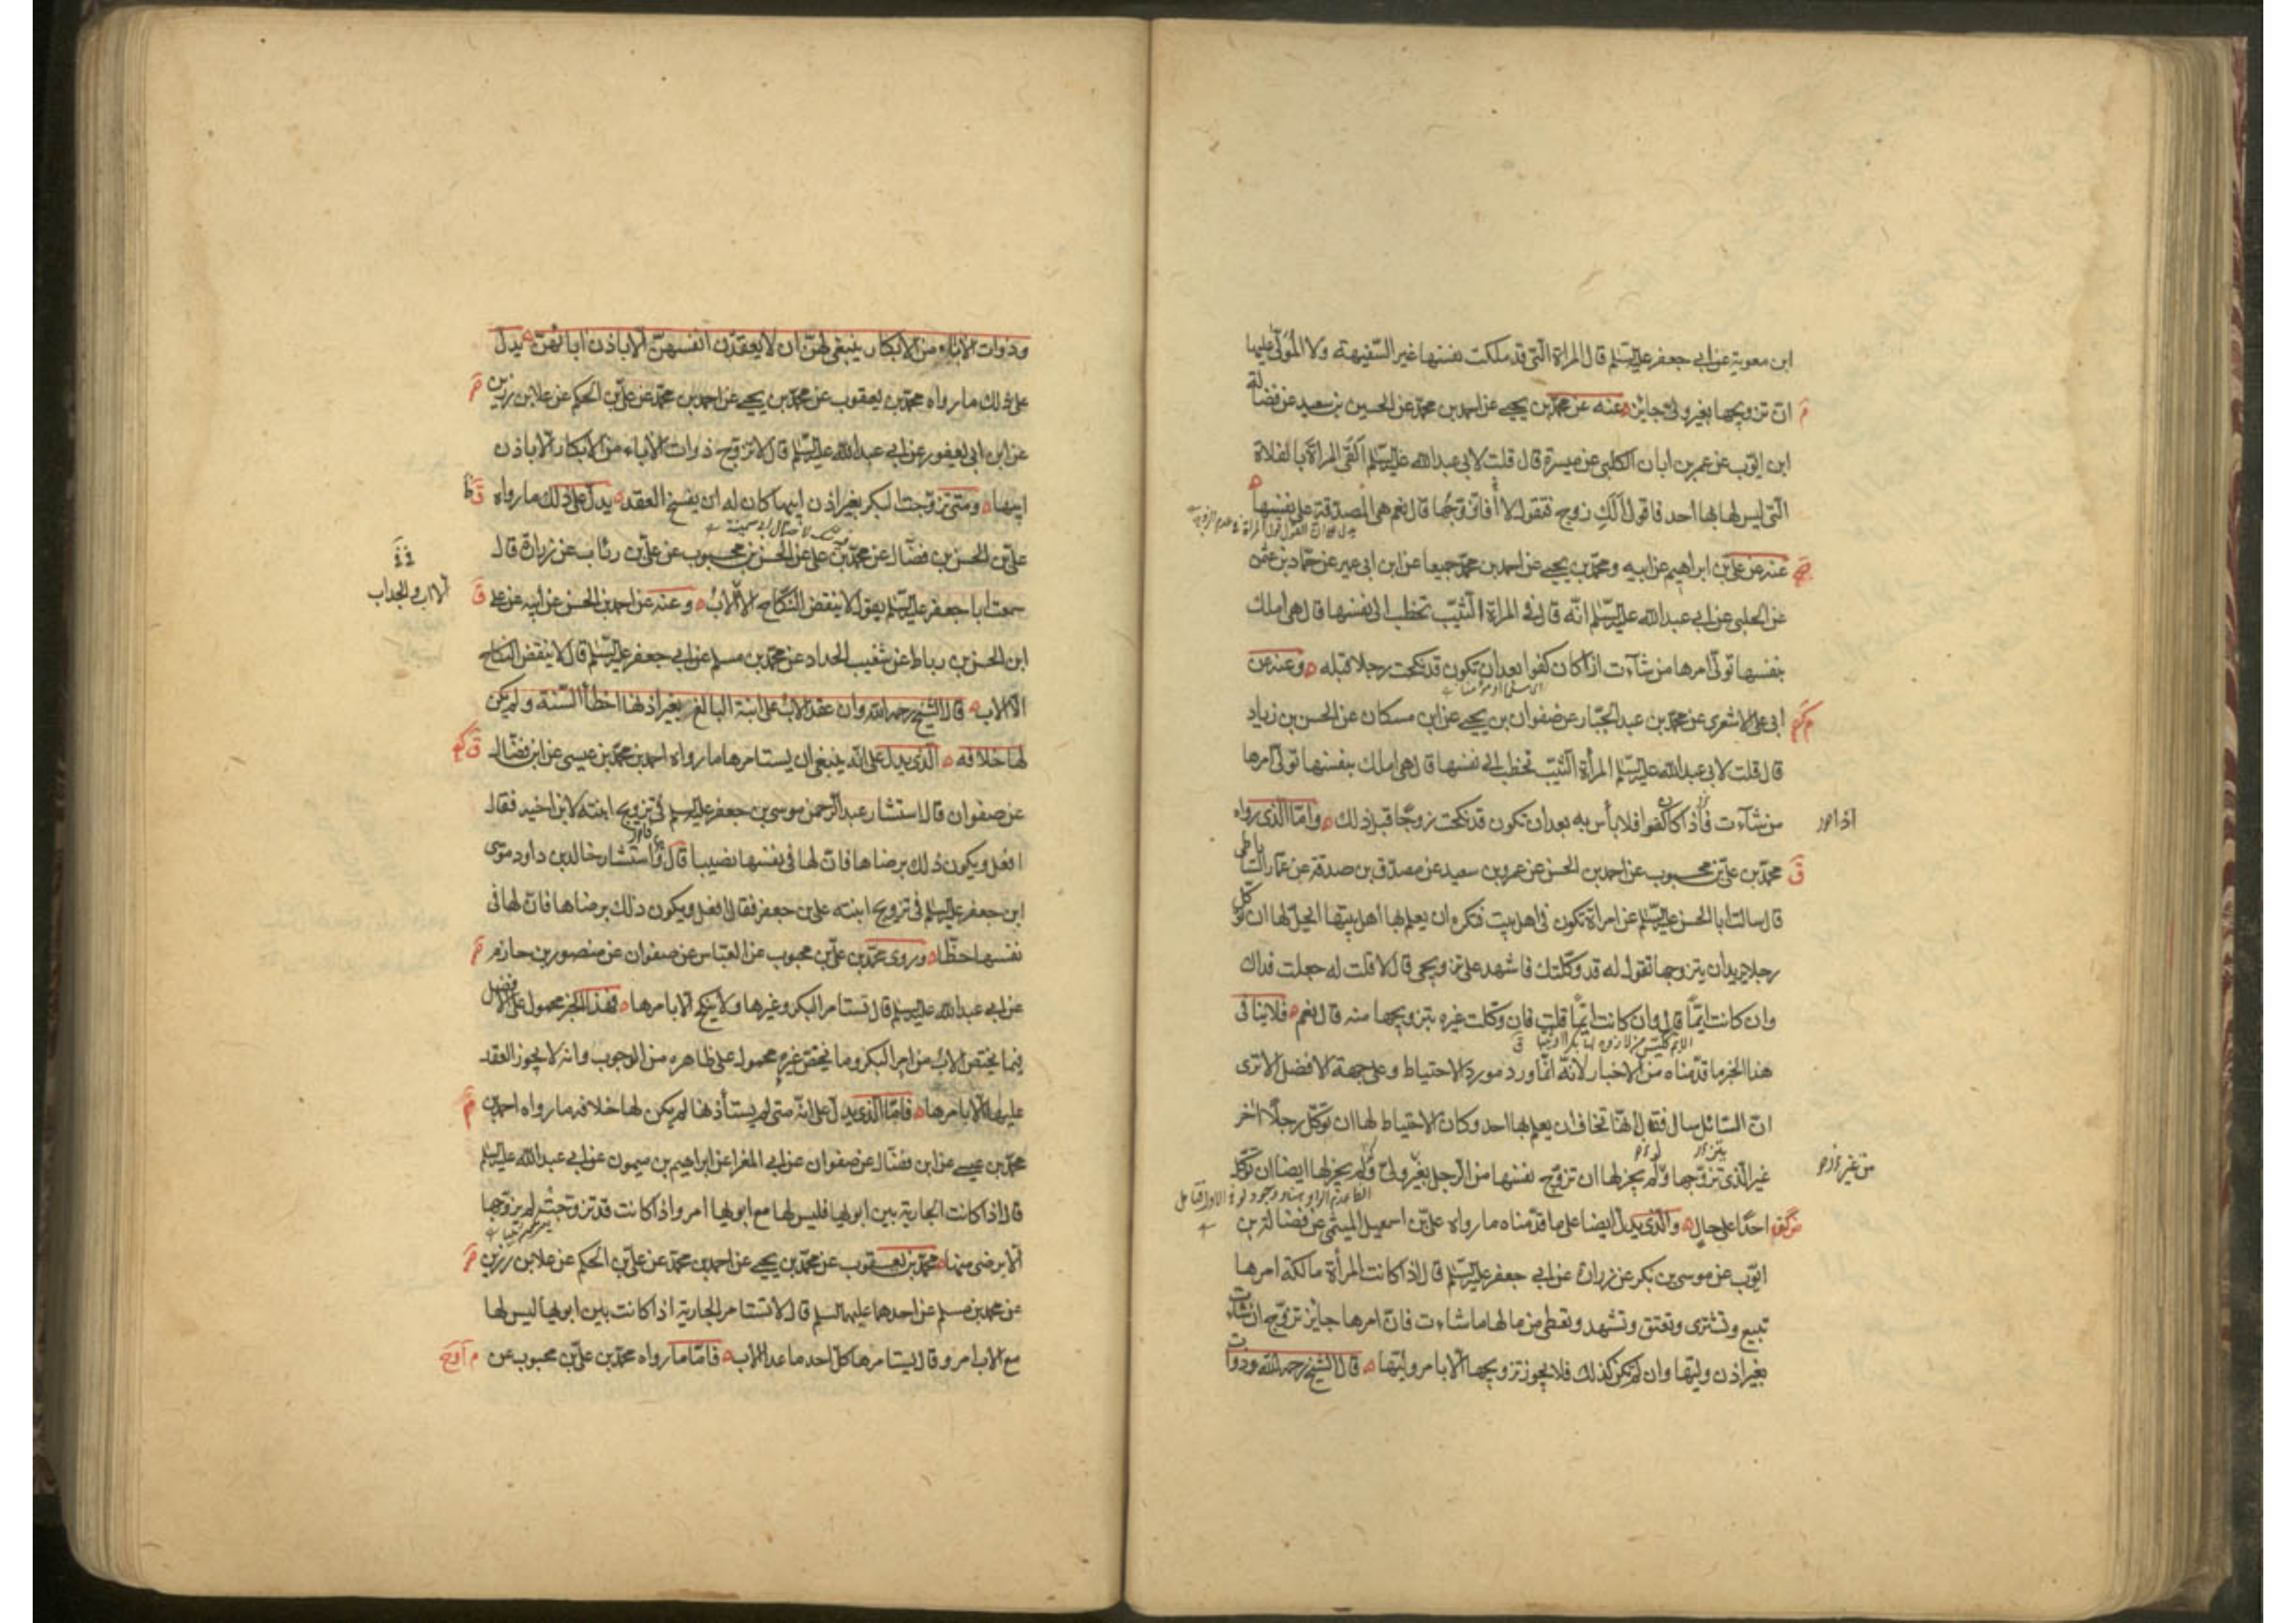 ابن معوية عن ابى جعفر عليه السلم قال المراة التى قد ملكت نفسها غير السفيهة ولا المولى عليها
ان تزويجها بغير ولى جايز عنه عن محمد بن يحيى عن احمد بن محمد عن الحسين بن سعيد عن فضالة
ابن ايوب عن عمر بن ابان الكلبى عن ميسرة قال قلت لابى عبد الله عليه السلم القى المراة بالفلاة
التى ليس لها بها احد فاقول لها لك زوج فتقول لا أفاتزوجها قال نعم هى المصدقة على نفسها
عنه عن على بن ابراهيم عن ابيه ومحمد بن يحيى عن احمد بن محمد جميعا عن ابن ابى عمير عن حماد بن عثمن
عن الحلبى عن ابى عبد الله عليه السلم انه قال فى المراة الثيب تخطب الى نفسها قال هى املك
بنفسها تولى امرها من شاءت اذا كان كفوا بعد ان تكون قد نكحت رجلا قبله وعنه عن
ابى على الاشعرى عن محمد بن عبد الجبار عن صفوان بن يحيى عن ابن مسكان عن الحسن بن زياد
قال قلت لابى عبد الله عليه السلم المرأة الثيب تخطب الى نفسها قال هى املك بنفسها تولى امرها
من شاءت فاذا كان كفوا فلا بأس به بعد ان تكون قد نكحت زوجا قبل ذلك واما الذى رواه
محمد بن على بن محبوب عن احمد بن الحسن عن عمرو بن سعيد عن مصدق بن صدقة عن عمار الساباطى
قال سالت ابا الحسن عليه السلم عن امراة تكون فى اهل بيت فتكره ان يعلم بها اهل بيتها ايحل لها ان توكل
رجلا يريدان يتزوجها تقول له قد وكلتك فاشهد على تزويجى قال لا قلت له جعلت فداك
وان كانت ايما قال وان كانت ايما قلت فان وكلت غيره بتزويجها منه قال نعم فلا ينافى
هذا الخبر ما قدمناه من الاخبار لانه انما ورد مورد الاحتياط وعلى جهة الافضل الا ترى
ان السائل سال فقال انها تخاف ان يعلم بها احد وكان الاحتياط لها ان توكل رجلا اخر
غير الذى تزوجها ولم يجز لها ان تزوج نفسها من الرجل بغير ولى ولم يجز لها ايضا ان توكل
احدا على حال والذى يدل ايضا على ما قدمناه ما رواه على بن اسمعيل الميثمى عن فضالة بن
ايوب عن موسى بن بكر عن زرارة عن ابى جعفر عليه السلم قال اذا كانت المرأة مالكة امرها
تبيع وتشترى وتعتق وتشهد وتعطى من مالها ما شاءت فان امرها جايز تزوج ان شاءت
بغير اذن وليها وان لم تكن كذلك فلا يجوز تزويجها الا بامر وليها قال الشيخ رحمه الله وذوات
وذوات الاباء من الابكار ينبغى لهن ان لا يعقدن انفسهن الا باذن ابائهن يدل
على ذلك ما رواه محمد بن يعقوب عن محمد بن يحيى عن احمد بن محمد عن على بن الحكم عن علا بن رزين
عن ابن ابى يعفور عن ابى عبد الله عليه السلم قال لا تزوج ذوات الاباء من الابكار الا باذن
ابيها ومتى تزوجت البكر بغير اذن ابيها كان له ان يفسخ العقد يدل على ذلك ما رواه
على بن الحسن بن فضال عن محمد بن على عن الحسن بن محبوب عن على بن رئاب عن زرارة قال
سمعت ابا جعفر عليه السلم يقول لا ينقض النكاح الا الاب وعنه عن احمد بن الحسن عن ابيه عن على
ابن الحسن بن رباط عن شعيب الحداد عن محمد بن مسلم عن ابى جعفر عليه السلم قال لا ينقض النكاح
الا الاب قال الشيخ رحمه الله وان عقد الاب على ابنته البالغ بغير اذنها اخطأ السنة ولم يكن
لها خلافه الذى يدل على انه ينبغى ان يستامرها ما رواه احمد بن محمد بن عيسى عن ابن فضال
عن صفوان قال استشار عبد الرحمن موسى بن جعفر عليه السلم فى تزويج ابنته لابن اخيه فقال
افعل ويكون ذلك برضاها فان لها فى نفسها نصيبا قال واستشار خالد بن داود موسى
ابن جعفر عليه السلم فى تزويج ابنته على بن جعفر فقال افعل ويكون ذلك برضاها فان لها فى
نفسها حظا وروى محمد بن على بن محبوب عن العباس عن صفوان عن منصور بن حازم
عن ابى عبد الله عليه السلم قال تستامر البكر وغيرها ولا ينكح الا بامرها فهذا الخبر محمول على الافضل
فيما يختص الاب من امر البكر وما يختص غيره محمول على ظاهره من الوجوب وانه لا يجوز العقد
عليها الا بامرها فاما الذى يدل على انه متى لم يستأذنها لم يكن لها خلافه ما رواه احمد بن
محمد بن عيسى عن ابن فضال عن صفوان عن ابى المغرا عن ابراهيم بن ميمون عن ابى عبد الله عليه السلم
قال اذا كانت الجارية بين ابويها فليس لها مع ابويها امر واذا كانت قد تزوجت لم يزوجها
الا برضى منها محمد بن يعقوب عن محمد بن يحيى عن احمد بن محمد عن على بن الحكم عن علا بن رزين
عن محمد بن مسلم عن احدهما عليهما السلم قال لا تستامر الجارية اذا كانت بين ابويها ليس لها
مع الاب امر وقال يستامرها كل احد ما عدا الاب فاما ما رواه محمد بن على بن محبوب عن
الا اب والجد اب